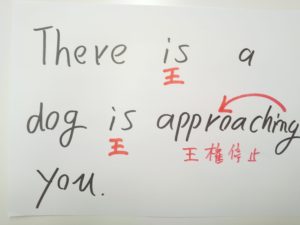 There is a
王
dog is approaching
王 王権停止
you.